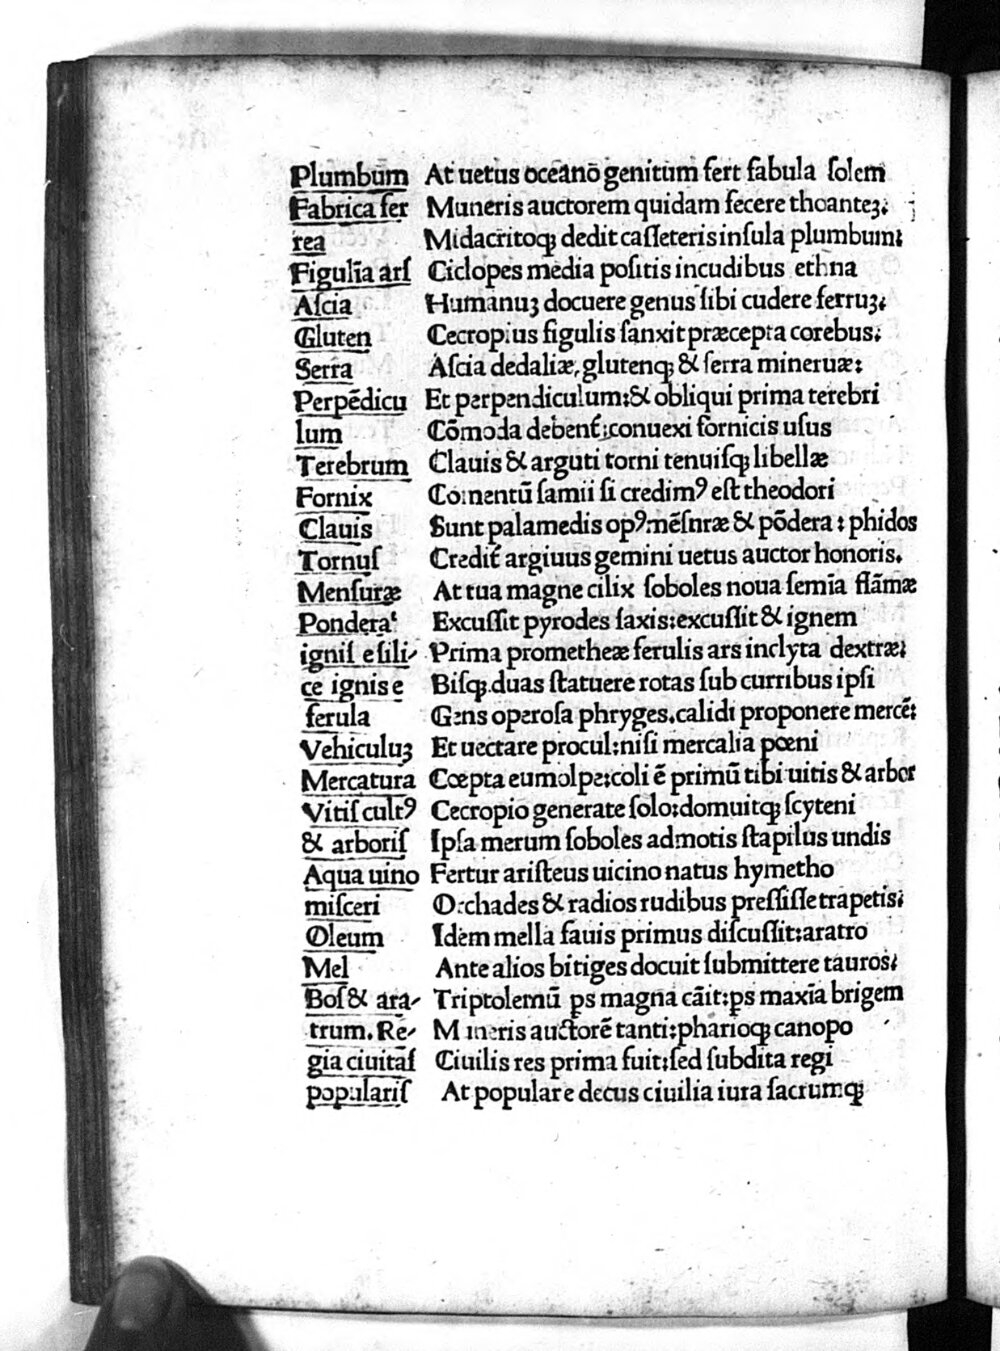 Plumbum At uetus oceanō genitum fert fabula ſolem
Fabrica fer Muneris auctorem quidam fecere thoanteꝫ:
rea Midacritoqꝫ dedit caſſeteris inſula plumbum:
Figulīa arſ Ciclopes media poſitis incudibus ethna
Aſcia Humanuꝫ docuere genus ſibi cudere ferruꝫ:
Gluten Cecropius figulis ſanxit præcepta corebus:
Serra Aſcia dedaliæ, glutenqꝫ & ſerra mineruæ:
Perpēdicu Et perpendiculum:& obliqui prima terebri
lum Cōmoda debenť:conuexi fornicis uſus
Terebrum Clauis & arguti torni tenuiſqꝫ libellæ
Fornix Comentū ſamii ſi credimꝰ eſt theodori
Clauis Sunt palamedis opꝰ:mēſuræ & pōdera : phidos
Tornuſ Crediť argiuus gemini uetus auctor honoris.
Menſuræ At tua magne cilix ſoboles noua ſemīa flāmæ
Pondera Excuſſit pyrodes ſaxis:excuſſit & ignem
igniſ e ſili- Prima prometheæ ferulis ars inclyta dextræ:
ce ignis e Biſqꝫ duas ſtatuere rotas ſub curribus ipſi
ferula Gens operoſa phryges.calidi proponere mercē:
Vehiculuꝫ Et uectare procul:niſi mercalia pœni
Mercatura Cœpta eumolpe:coli ē primū tibi uitis & arbor
Vitiſ cultꝰ Cecropio generate ſolo:domuitqꝫ ſcyteni
& arboriſ Ipſa merum ſoboles admotis ſtapilus undis
Aqua uino Fertur ariſteus uicino natus hymetho
miſceri Orchades & radios rudibus preſſiſſe trapetis:
Oleum Idem mella fauis primus diſcuſſit:aratro
Mel Ante alios bitiges docuit ſubmittere tauros:
Boſ & ara- Triptolemū ꝑs magna cāit:ꝑs maxīa brigem
trum. Re- Muneris auctorē tanti:pharioqꝫ canopo
gia ciuitaſ Ciuilis res prima fuit:ſed ſubdita regi
populariſ At populare decus ciuilia iura ſacrumqꝫ